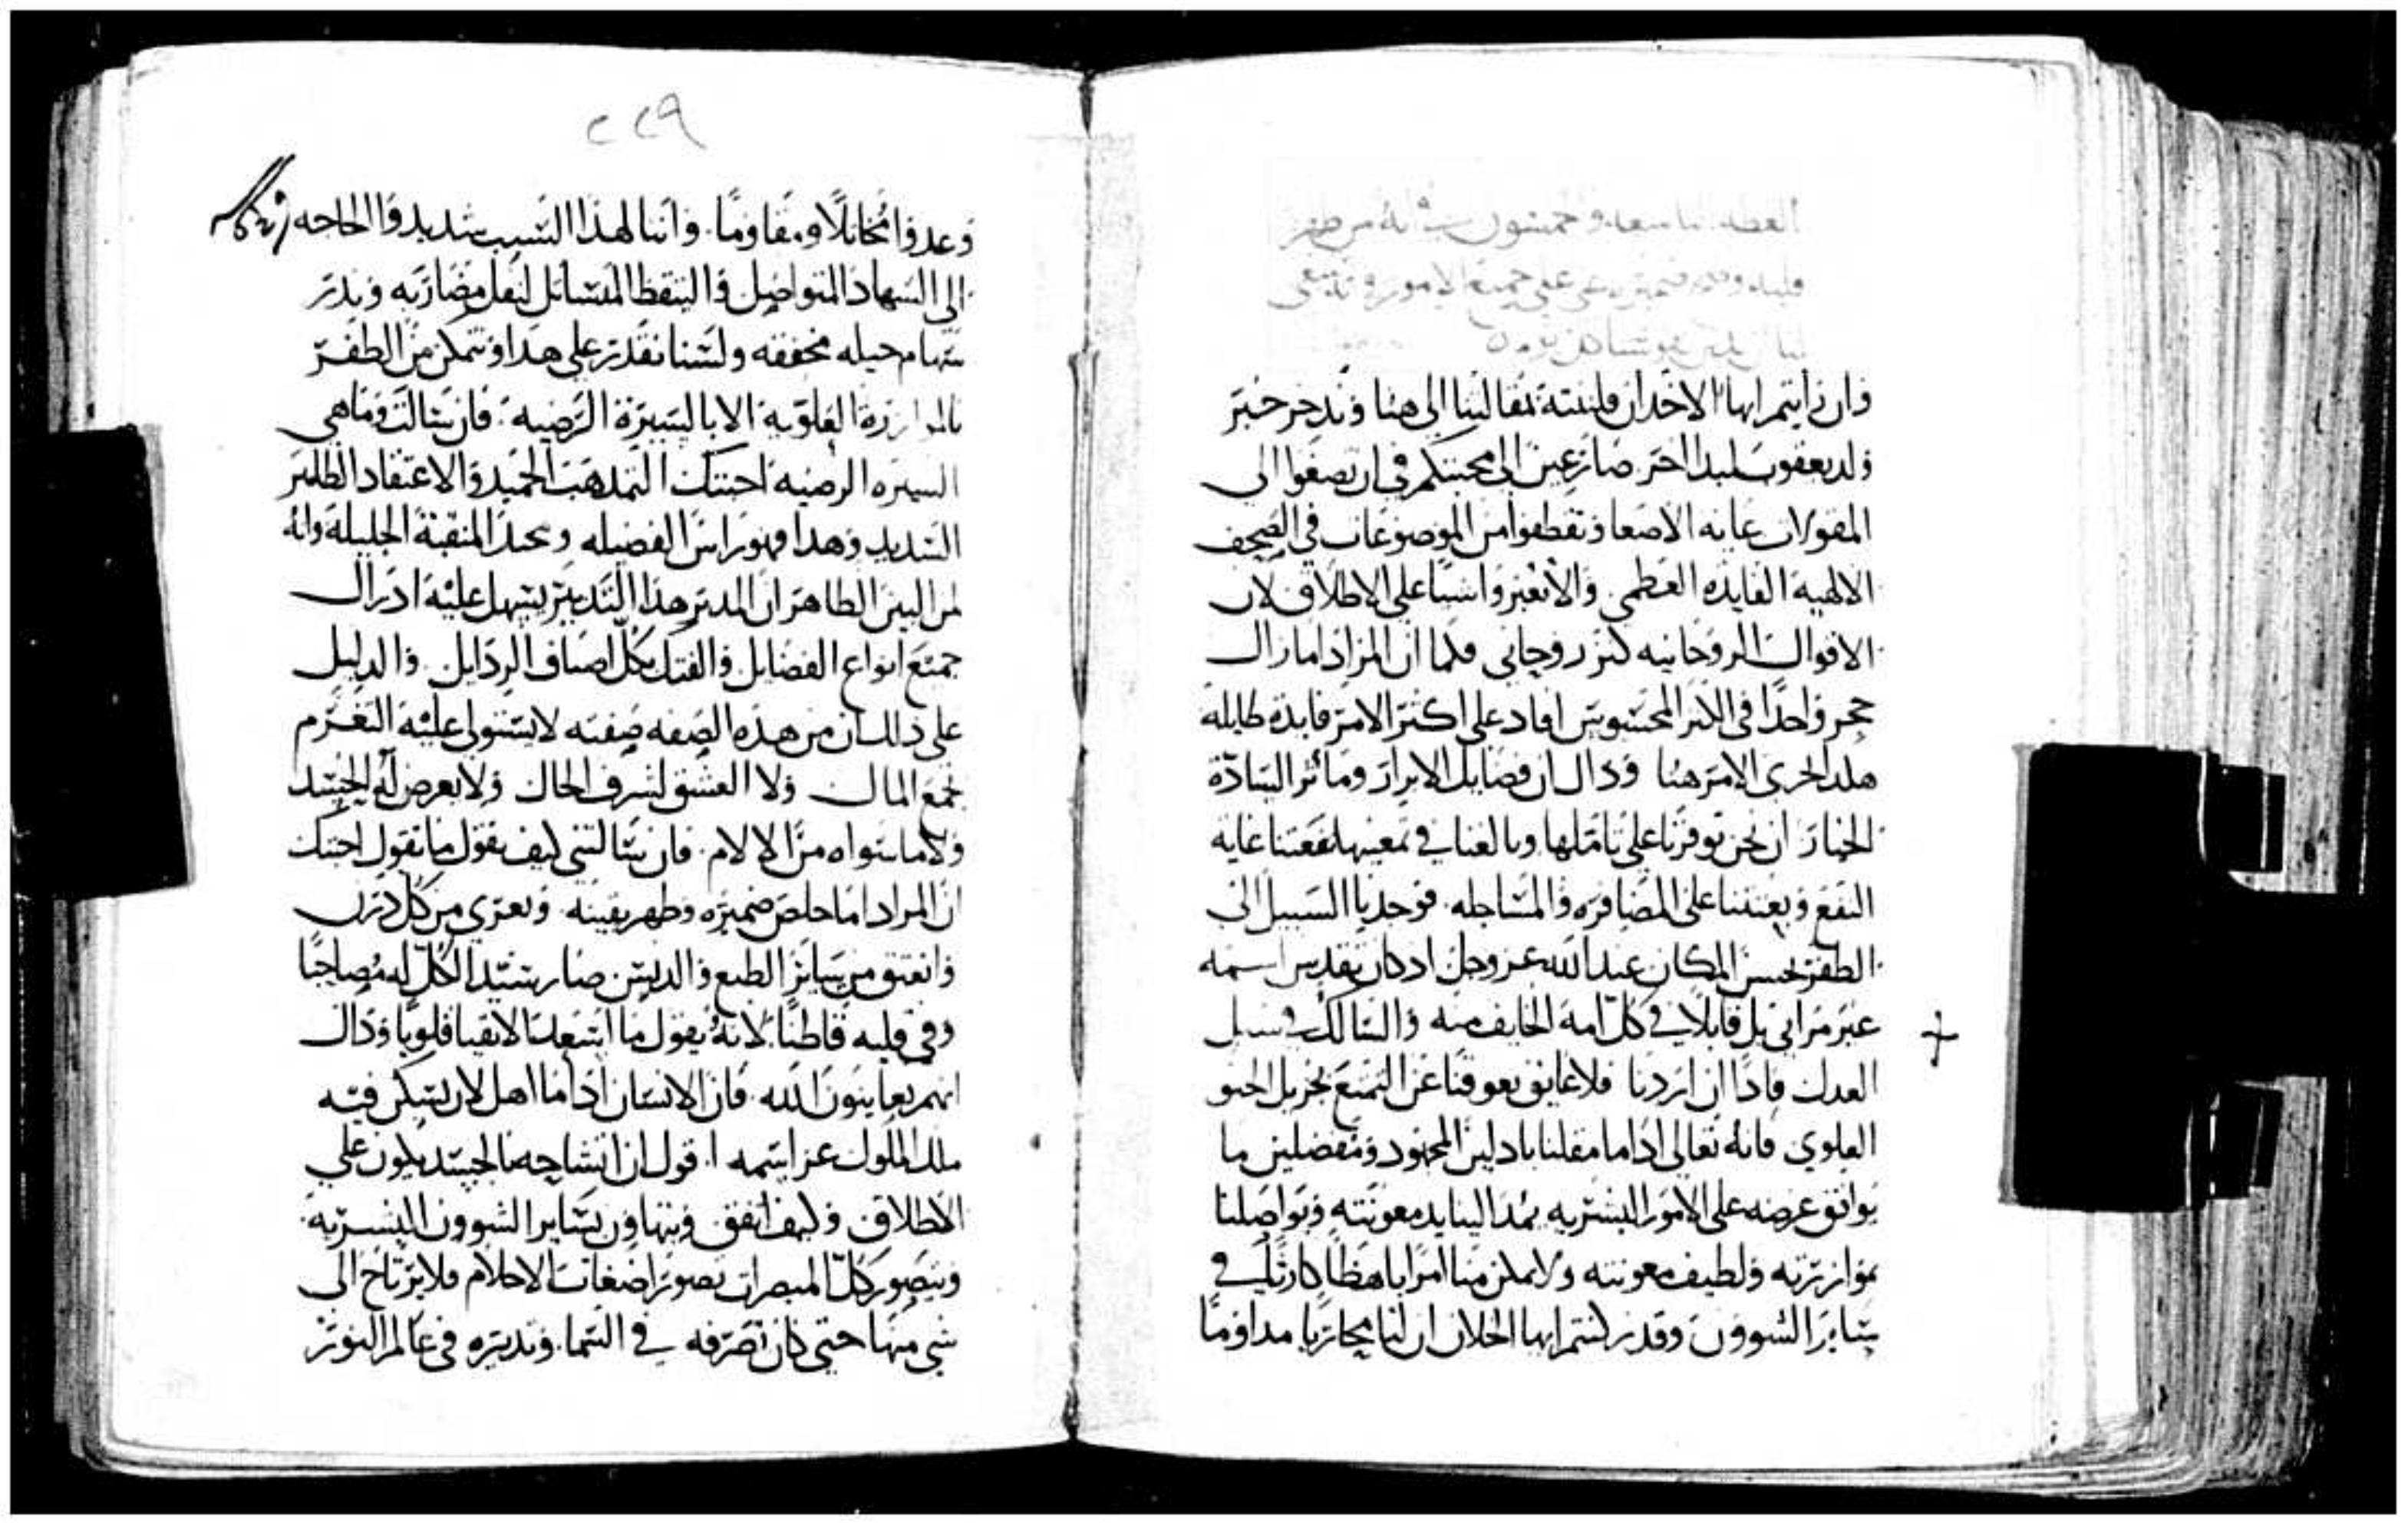 العظه التاسعه وخمسون في انه من طهر
قلبه وضميره على جميع الامور
وان رأيتم ايها الاخدان فلننته بمقالتنا الى هنا وندحر خبر
ولد يعقوب لبلد اخر ضارعين الى محبتكم في ان تصغوا الى
المقولات غايه الاصغا وتقطفوا من الموضوعات في الصحف
الالهيه الفايده العظمى والانغبروا اسيا على الاطلاق لان
الاقوال الروحانيه كنز روحاني فكما ان المراد اما زال
حجر واحدا في الكنز المحسوس افاد على اكثر الامر فايدة طايله
هكذا الحرى الامر هنا وذاك ان فضايل الابرار ومآثر السادة
الخيار ان نحن توفرنا على تاملها وبالغنا في تمعينها نفعتنا غايه
النفع وبعثتنا على المضافره والمساجله فوجدنا السبيل الى
الطفر بحسن المكان عند الله عز وجل اذ كان تقدس اسمه
غير مرائي بل قابلا في كل امة الخايف منه والسالك في سبيل
العدل فاذا ان اردنا فلا عايق يعوقنا عن التمتع بجزيل الحنو
العلوي فانه تعالى اذا ما مقلنا باذلين المجهود ومفضلين ما
يوافق غرضه على الامور البشريه يمد الينا يد معونته ويواصلنا
بموازرته ولطيف معونته ولا يمكن منا امرا باهظا كارثا في
ساير الشوون وقد ذكرتم ايها الخلان ان لنا محاربا مداوما
٢٢٩
وعدوا مخاتلا ومقاوما. واننا لهذا السبب شديدوا الحاجه
الى السهاد المتواصل والتيقظ المتسائل لنفل مضاربه وندثر
سهام حيله مخففه ولسنا نقدر على هذا ونتمكن من الطفر
بالموازرة العلوية الا بالسيرة الرضيه. فان سالت وما هي
السيره الرضيه اجبتك التمذهب الحميد والاعتقاد الطاهر
السديد وهذا فهو راس الفضيله ومحتد المنقبة الجليلة وانه
لمن البين الطاهر ان المدبر هذا التدبير يسهل عليه ادراك
جميع انواع الفضايل والفتك بكل اصناف الرذايل. والدليل
على ذلك ان من هذه الصفه صفته لا يستولى عليه التغرم
بجمع المال ولا العشق لشرف الحال ولا يعرض له الحسد
ولا ما سواه من الالام. فان سالتني كيف نقول ما نقول اجبتك
ان المراد اما خلص ضميره وطهر يقينه وتعرى من كل درن
وانعتق من ساير الطبع والدنس صار سيد الكل له مصاحبا
وفي قلبه قاطنا لانه يقول ما اسعد الانقيا قلوبا وذاك
انهم يعاينون الله. فان الانسان اذا ما اهل لان يسكن فيه
ملك الملوك عز اسمه اقول ان اتشاحه بالجسد يكون على
الاطلاق وكيف اتفق ويتهاون بساير الشوون البشرية.
ويتصور كل المبصرات تصور اضغاث الاحلام فلا يرتاح الى
شي منها حتى كان تصرفه في السما وتدبيره في عالم النور